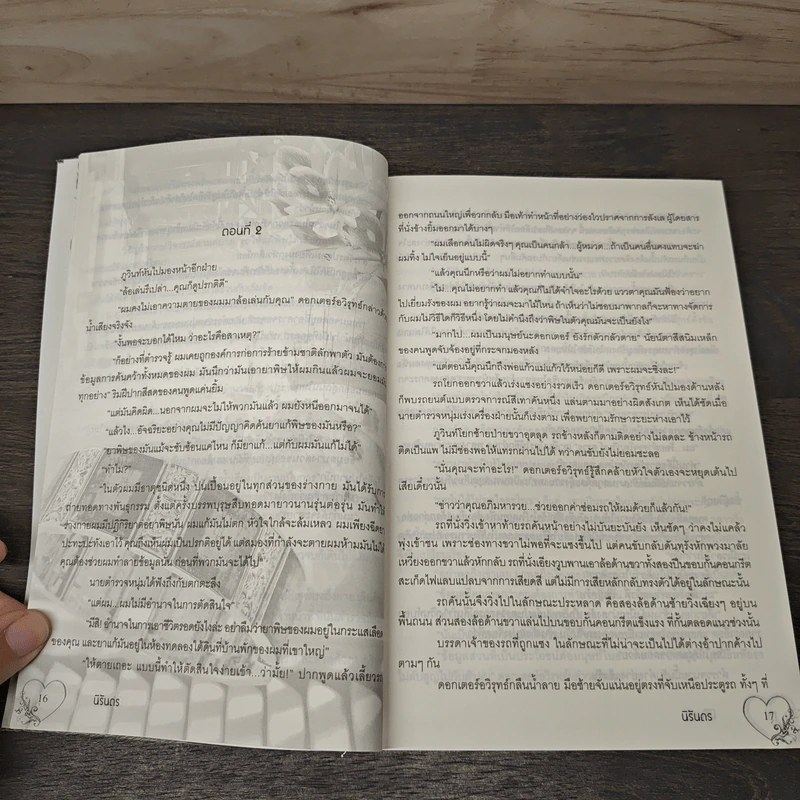 ตอนที่ 2
ภูวินท์หันไปมองหน้าอีกฝ่าย
“ล้อเล่นรึเปล่า...คุณก็ดูปรกติดี”
“ผมคงไม่เอาความตายของผมมาล้อเล่นกับคุณ” ดอกเตอร์อวิรุทธ์กล่าวด้วย
น้ำเสียงจริงจัง
“งั้นพอจะบอกได้ไหม ว่าอะไรคือสาเหตุ?”
“ก็อย่างที่ตำรวจรู้ ผมเคยถูกองค์การก่อการร้ายข้ามชาติลักพาตัว มันต้องการ
ข้อมูลการค้นคว้าทั้งหมดของผม มันนึกว่ามันเอายาพิษให้ผมกินแล้วผมจะยอมมัน
ทุกอย่าง” ริมฝีปากสีสดของคนพูดแค่นยิ้ม
“แต่มันคิดผิด...นอกจากผมจะไม่ให้พวกมันแล้ว ผมยังหนีออกมาจนได้”
“แล้วไง...อัจฉริยะอย่างคุณไม่มีปัญญาคิดค้นยาแก้พิษของมันหรือ?”
“ยาพิษของมันแม้จะซับซ้อนแค่ไหน ก็มียาแก้...แต่กับผมมันแก้ไม่ได้”
“ทำไม?”
“ในตัวผมมีธาตุชนิดหนึ่ง ปนเปื้อนอยู่ในทุกส่วนของร่างกาย มันได้รับการ
ถ่ายทอดทางพันธุกรรม ตั้งแต่ครั้งบรรพบุรุษสืบทอดมายาวนานรุ่นต่อรุ่น มันทำให้
ร่างกายผมมีปฏิกิริยาต่อยาพิษนั่น ผมแก้มันไม่ตก หัวใจใกล้จะล้มเหลว ผมเพียงฉีดยา
ปะทะปะทังเอาไว้ คุณถึงเห็นผมเป็นปรกติอยู่ได้ แต่สมองที่กำลังจะตายผมห้ามมันไม่ได้
คุณต้องช่วยผมทำลายข้อมูลนั้น ก่อนที่พวกมันจะได้ไป”
นายตำรวจหนุ่มได้ฟังถึงกับตกตะลึง
“แต่ผม...ผมไม่มีอำนาจในการตัดสินใจ”
“มีสิ! อำนาจในการเอาชีวิตรอดยังไงล่ะ อย่าลืมว่ายาพิษของผมอยู่ในกระแสเลือด
ของคุณ และยาแก้มันอยู่ในห้องทดลองใต้ดินที่บ้านพักของผมที่เขาใหญ่”
“ให้ตายเถอะ แบบนี้ทำให้ตัดสินใจง่ายเข้า...ว่ามั้ย!” ปากพูดแล้วเลี้ยวรถ
16
นิรันดร
ออกจากถนนใหญ่เพื่อวกกลับ มือเท้าทำหน้าที่อย่างว่องไวปราศจากการลังเล ผู้โดยสาร
ที่นั่งข้างยิ้มออกมาได้บางๆ
“ผมเลือกคนไม่ผิดจริงๆ คุณเป็นคนกล้า...ผู้หมวด...ถ้าเป็นคนอื่นคงแทบจะฆ่า
ผมทิ้ง ไม่ใจเย็นอยู่แบบนี้”
“แล้วคุณนึกหรือว่าผมไม่อยากทำแบบนั้น”
“ไม่...คุณไม่อยากทำ แล้วคุณก็ไม่ได้จำใจอะไรด้วย แววตาคุณฟ้องว่าอยาก
ไปเยี่ยมรังของผม อยากรู้ว่าผมจะมาไม้ไหน ถ้าเห็นว่าไม่ชอบมาพากลก็จะหาทางจัดการ
กับผมไม่วิธีใดก็วิธีหนึ่ง โดยไม่คำนึงถึงว่าพิษในตัวคุณมันจะเป็นยังไง”
“มากไป...ผมเป็นมนุษย์นะดอกเตอร์ ยังรักตัวกลัวตาย” นัยน์ตาสีสนิมเหล็ก
ของคนพูดจับจ้องอยู่ที่กระจกมองหลัง
“แต่ตอนนี้คุณนึกถึงพ่อแก้วแม่แก้วไว้หน่อยก็ดี เพราะผมจะซิ่งล่ะ!”
รถโยกออกขวาแล้วเร่งแซงอย่างรวดเร็ว ดอกเตอร์อวิรุทธ์หันไปมองด้านหลัง
ก็พบรถยนต์แบบตรวจการณ์สีเทาคันหนึ่ง แล่นตามมาอย่างผิดสังเกต เห็นได้ชัดเมื่อ
นายตำรวจหนุ่มเร่งเครื่องฝ่ายนั้นก็เร่งตาม เพื่อพยายามรักษาระยะห่างเอาไว้
ภูวินท์โยกซ้ายป่ายขวาอุตลุด รถข้างหลังก็ตามติดอย่างไม่ลดละ ข้างหน้ารถ
ติดเป็นแพ ไม่มีช่องพอให้แทรกผ่านไปได้ ทว่าคนขับก็ยังไม่ยอมชะลอ
“นั่นคุณจะทำอะไร!” ดอกเตอร์อวิรุทธ์รู้สึกคล้ายหัวใจตัวเองจะหยุดเต้นไป
เสียเดี๋ยวนั้น
“ข่าวว่าคุณอภิมหารวย...ช่วยออกค่าซ่อมรถให้ผมด้วยก็แล้วกัน!”
รถที่นั่งวิ่งเข้าหาท้ายรถคันหน้าอย่างไม่บันยะบันยัง เห็นชัดๆ ว่าคงไม่แคล้ว
พุ่งเข้าชน เพราะช่องทางขวาไม่พอที่จะแซงขึ้นไป แต่คนขับกลับดันทุรังหักพวงมาลัย
เหวี่ยงออกขวาแล้วหักกลับ รถที่นั่งเอียงวูบพานเอาล้อด้านขวาทั้งสองปีนขอบกั้นคอนกรีต
สะเก็ดไฟแลบแปลบจากการเสียดสี แต่ไม่มีการเสียหลักกลับทรงตัวได้อยู่ในลักษณะนั้น
รถคันนั้นจึงวิ่งไปในลักษณะประหลาด คือสองล้อด้านซ้ายวิ่งเฉียงๆ อยู่บน
พื้นถนน ส่วนสองล้อด้านขวาแล่นไปบนขอบกั้นคอนกรีตแข็งแรง ที่กั้นตลอดแนวช่วงนั้น
บรรดาเจ้าของรถที่ถูกแซง ในลักษณะที่ไม่น่าจะเป็นไปได้ต่างอ้าปากค้างไป
ตามๆ กัน
ดอกเตอร์อวิรุทธ์กลืนน้ำลาย มือซ้ายจับแน่นอยู่ตรงที่จับเหนือประตูรถ ทั้งๆ ที่
นิรันดร
17